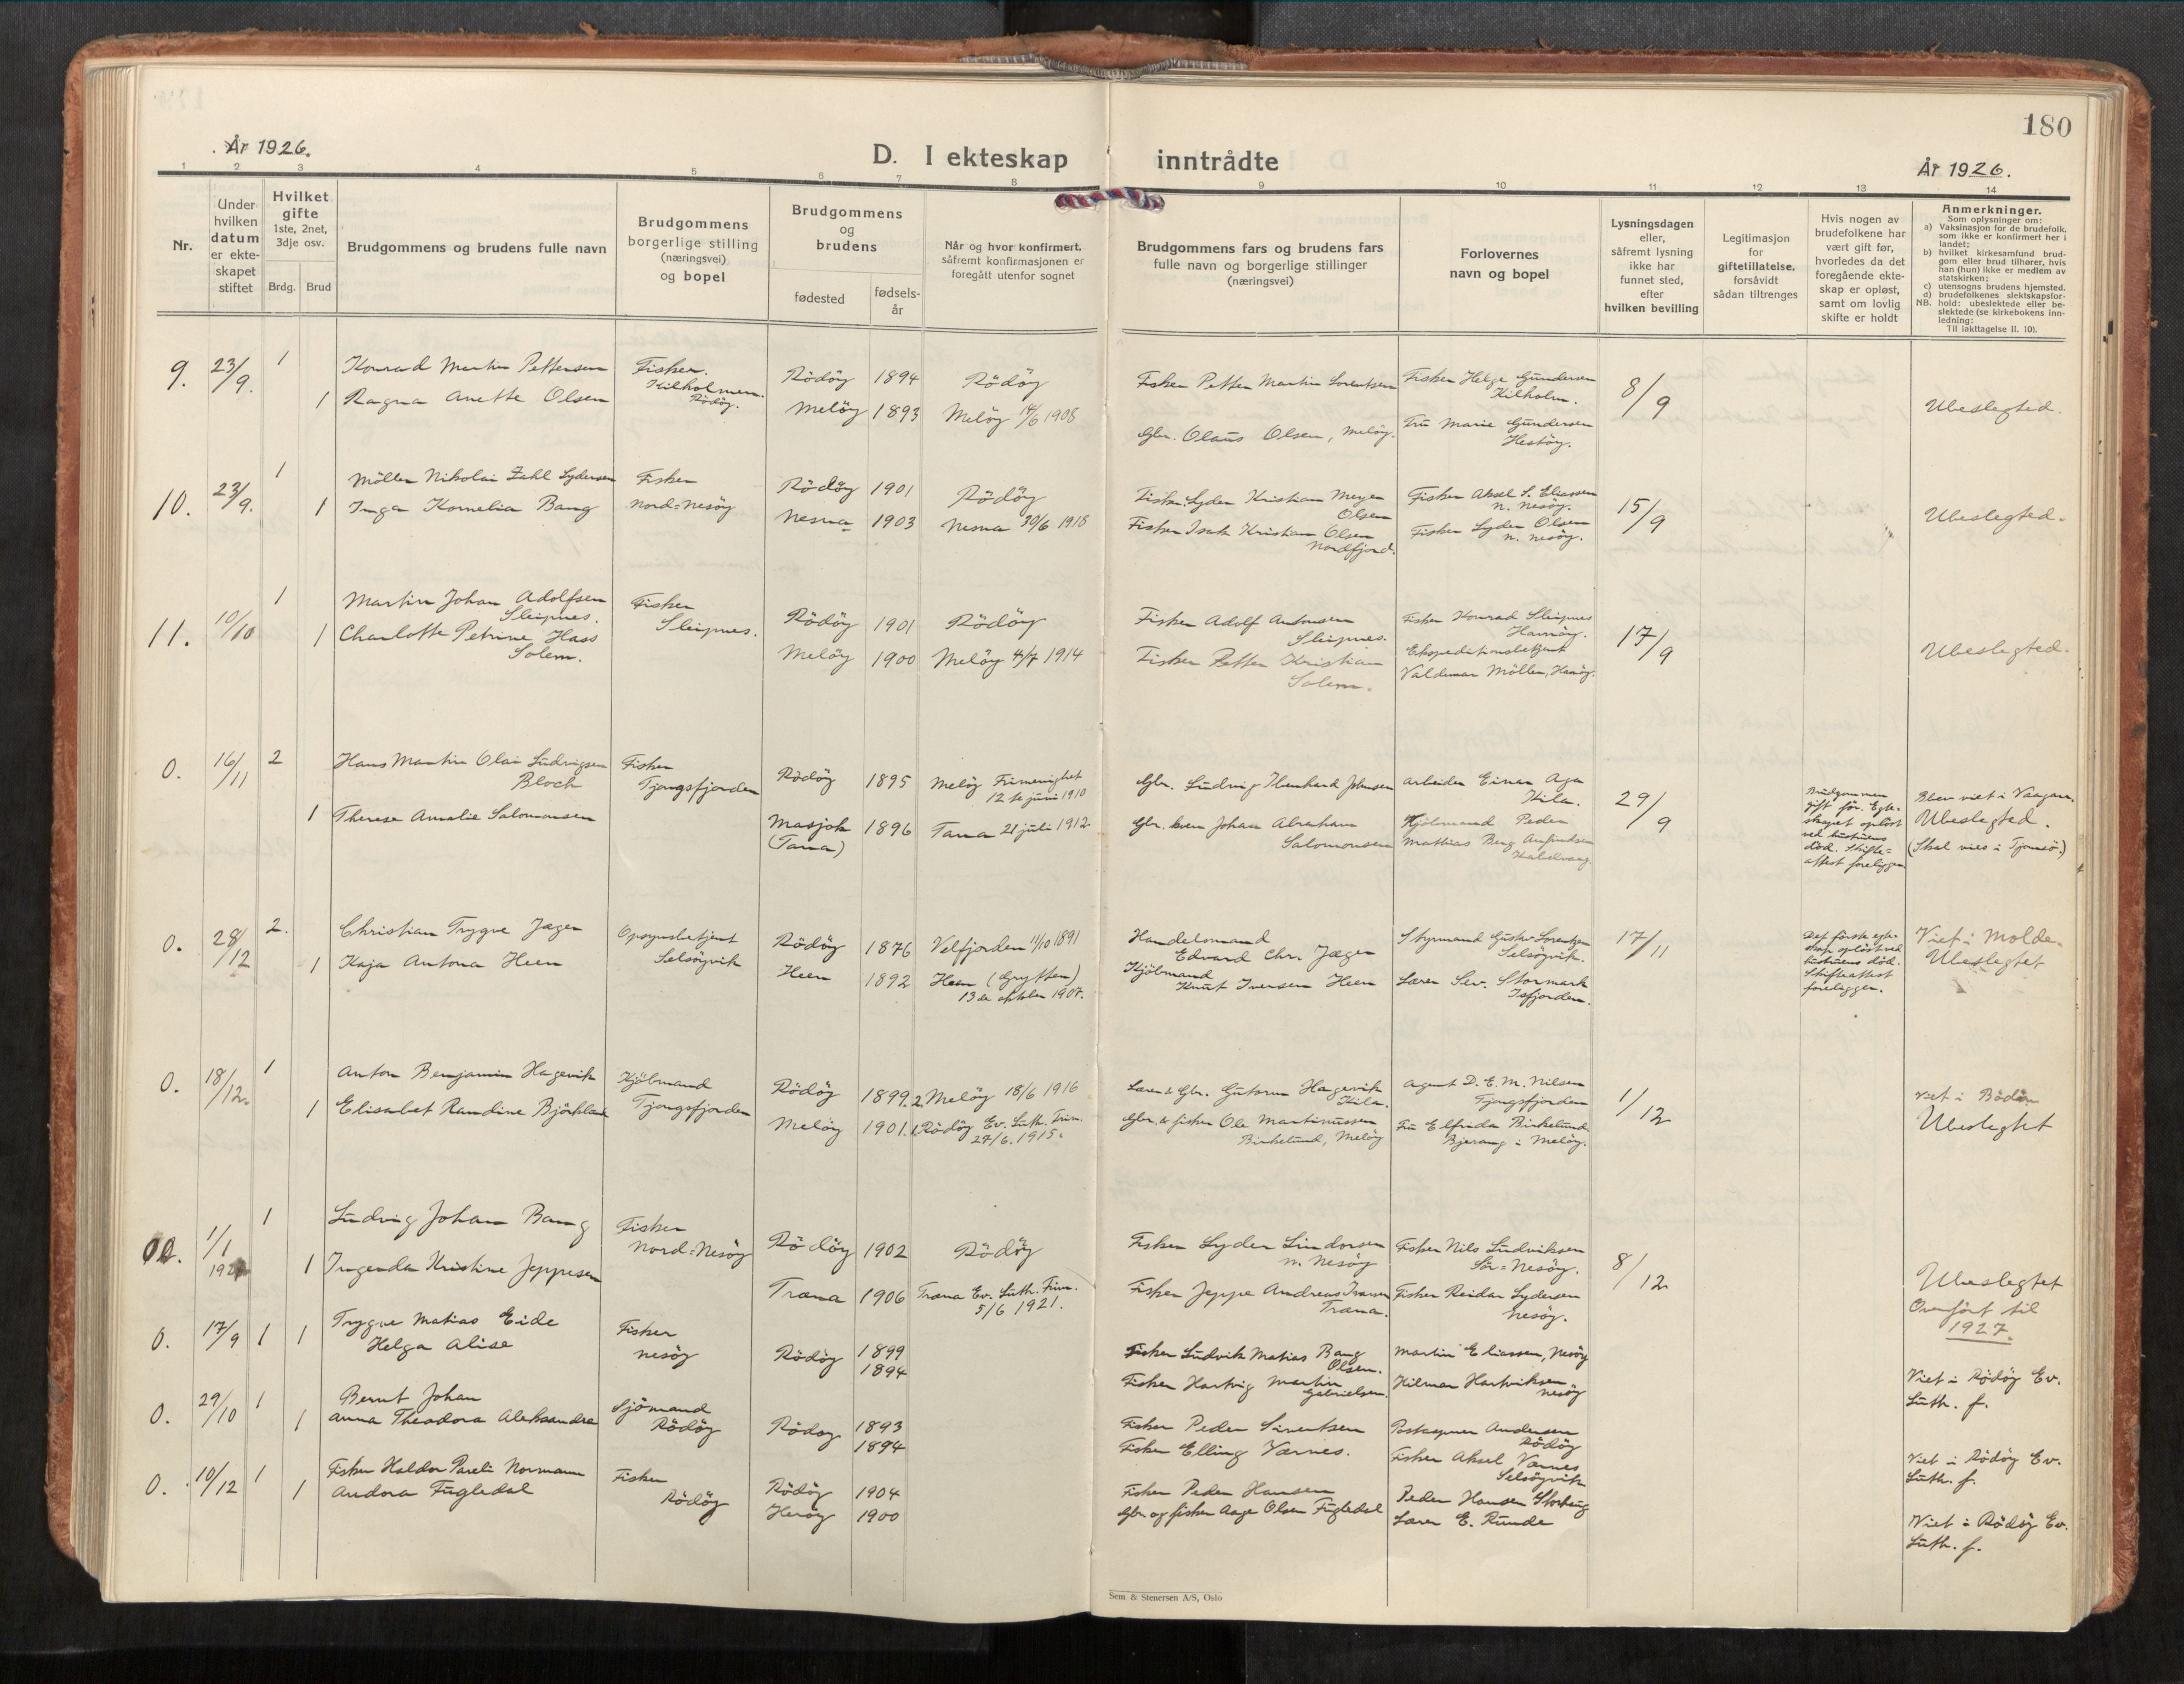 180
År 1926.
D. I ekteskap inntrådte
År 1926.
1 2 3 4 5 6 7 8 9 10 11 12 13 14
Nr.
Under hvilken datum er ekte-skapet stiftet
Hvilket gifte 1ste, 2net, 3dje osv.
Brdg. Brud
Brudgommens og brudens fulle navn
Brudgommens borgerlige stilling (næringsvei) og bopel
Brudgommens og brudens
fødested
fødsels-år
Når og hvor konfirmert, såfremt konfirmasjonen er foregått utenfor sognet
Brudgommens fars og brudens fars fulle navn og borgerlige stillinger (næringsvei)
Forlovernes navn og bopel
Lysningsdagen eller, såfremt lysning ikke har funnet sted, efter hvilken bevilling
Legitimasjon for giftetillatelse, forsåvidt sådan tiltrenges
Hvis nogen av brudefolkene har vært gift før, hvorledes da det foregående ekte-skap er opløst, samt om lovlig skifte er holdt
Anmerkninger.
Som oplysninger om:
a) Vaksinasjon for de brudefolk, som ikke er konfirmert her i landet;
b) hvilket kirkesamfund brud-gom eller brud tilhører, hvis han (hun) ikke er medlem av statskirken;
c) utensogns brudens hjemsted.
d) brudefolkenes slektskapsfor-hold: ubeslektede eller be-slektede (se kirkebokens inn-ledning:
NB.
Til iakttagelse II. 10).
9. 23/9. 1 Konrad Martin Pettersen Fisker. Kilholmen. Rödöy. Rödöy 1894 Rödöy Fisker Petter Martin Sorentsen Fisker Helge Gundersen Kilholm. 8/9
1 Ragna Anette Olsen Melöy 1893 Melöy 14/6 1908 Gbr. Olaus Olsen, Melöy. Fru Marie Gundersen Hestöy. Ubeslegted.
10. 23/9. 1 Möller Nikolai Zahl Lydersen Fisker Nord=Nesöy Rödöy 1901 Rödöy Fisker Lyder Kristian Meyer Olsen Fisker Aksel S. Eliassen N. Nesöy. 15/9
1 Inga Kornelia Bang Nesna 1903 Nesna 30/6 1918 Fisker Isak Kristian Olsen Nordfjord. Fisker Lyder Olsen N. Nesöy. Ubeslegted.
11. 10/10 1 Martin Johan Adolfsen Sleipnes. Fisker Sleipnes. Rödöy 1901 Rödöy Fisker Adolf Antonsen Sleipnes. Fisker Konrad Sleipnes Havnöy. 17/9
1 Charlotte Petrine Hass Solem. Melöy 1900 Melöy 4/7 1914 Fisker Petter Kristian Solem. Ekspeditionsbetjent Valdemar Möller, Havnöy. Ubeslegted.
0. 16/11 2 Hans Martin Olai Ludvigsen Bloch Fisker Tjongsfjorden Rödöy 1895 Melöy Frimenighet 12te juni 1910 Gbr. Ludvig Johnsen Arbeider Einar Aga Kila. 29/9
1 Therese Amalie Salomonsen Masjok (Tana) 1896 Tana 21 juli 1912 Gbr. Johan Abraham Salomonsen Hjölmand Peder Mathias Berg Kabelvaag
Brudgommen gift för. Egte-skapet oplöst ved hustruens död. Skifte=attest foreligger
Blev viet i Vaagan. Ubeslegted. (Skal vies i Tromsö.)
0. 28/12 2. Christian Trygve Jæger Opsynsbetjent Selsöyvik Rödöy 1876 Velfjorden 11/10 1891 Handelsmand Edvard Chr. Jæger Styrmand Gustav Lorentzen Selsöyvik. 17/11
1 Kaja Antona Heen Heen 1892 Heen (Grytten) 13de oktober 1907. Hjölmand Knut Iversen Heen Lærer Sev. Stormark Isfjorden.
Det förste egte-skap oplöst ved hustruens död. Skifteattest foreligger.
Viet i Molde. Ubeslegtet
0. 18/12. 1 Anton Benjamin Hagevik Hjölmand Tjongsfjorden Rödöy 1899. 2. Melöy 18/6 1916 Lærer & Gbr. Gutorm Hagevik Kila. Agent D. E. M. Nilsen Tjongsfjorden 1/12
1 Elisabet Randine Björklund Melöy 1901. Rödöy Ev. Luth. Frim. 27/6. 1915. Gbr. & fisker Ole Martinussen Birkelund, Melöy Fru Elfrida Birkelund Bjerang i Melöy.
Viet i Bodö
Ubeslegtet
1/1 1 Ludvig Johan Bang Fisker Nord=Nesöy Rödöy 1902 Rödöy Fisker Lyder Sindorsen N. Nesöy Fisker Nils Ludviksen Sör=Nesöy. 8/12
1 Ingenda Kristine Jeppesen Træna 1906 Træna Ev. Luth. Frim. 5/6 1921. Fisker Jeppe Andreas Iversen Træna. Fisker Reidar Lydersen Nesöy.
Ubeslegtet
Overfört til 1927.
0. 17/9 1 1 Trygve Matias Eide Fisker Nesöy Rödöy 1899 Fisker Ludvik Matias Bang Olsen. Martin Eliassen, Nesöy
Helga Alise 1894 Fisker Hartvig Martin Gabrielsen. Hilmar Hartviksen Nesöy
Viet i Rödöy Ev. Luth. f.
0. 29/10 1 Bernt Johan Sjömand Rödöy Rödöy 1893 Fisker Peder Sivertsen Postaapner Andersen Rödöy
1 Anna Theodora Aleksandra 1894 Fisker Elling Værnes. Fisker Aksel Værnes Selsöyvik
Viet i Rödöy Ev. Luth. f.
0. 10/12 1 Fisker Haldor Pareli Normann Fisker Rödöy Rödöy 1904 Fisker Peder Hansen Peder Hansen Storberg
1 Andora Fugledal Heröy 1900 Gbr. og fisker Aage Olsen Fugledal Lærer E. Runde
Viet i Rödöy Ev. Luth. f.
Sem & Stenersen A/S, Oslo